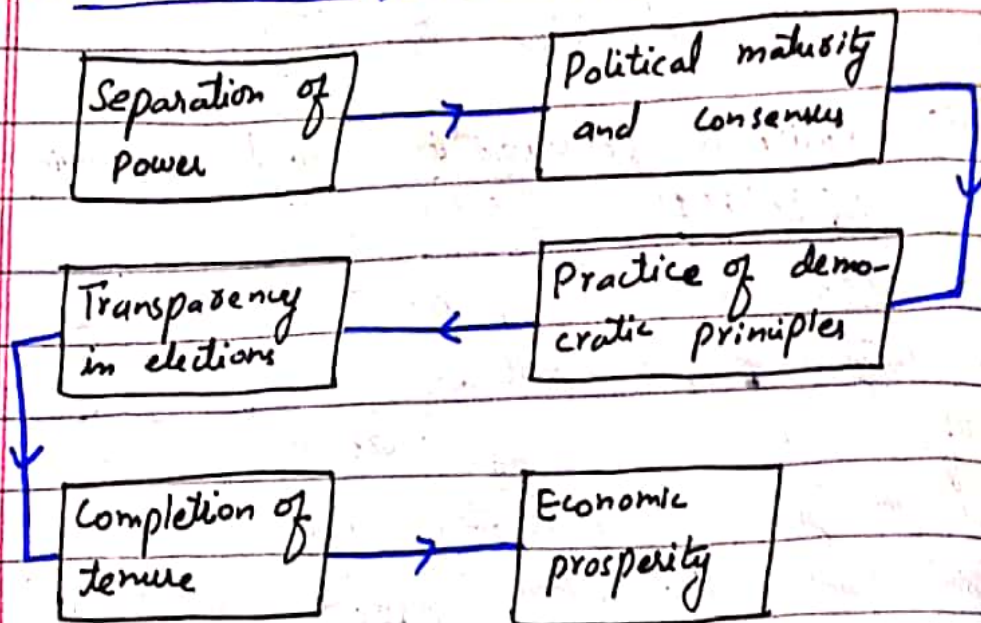 Separation of
Power
Political maturity
and consensus
Practice of demo-
cratic principles
Transparency
in elections
Completion of
tenure
Economic
prosperity